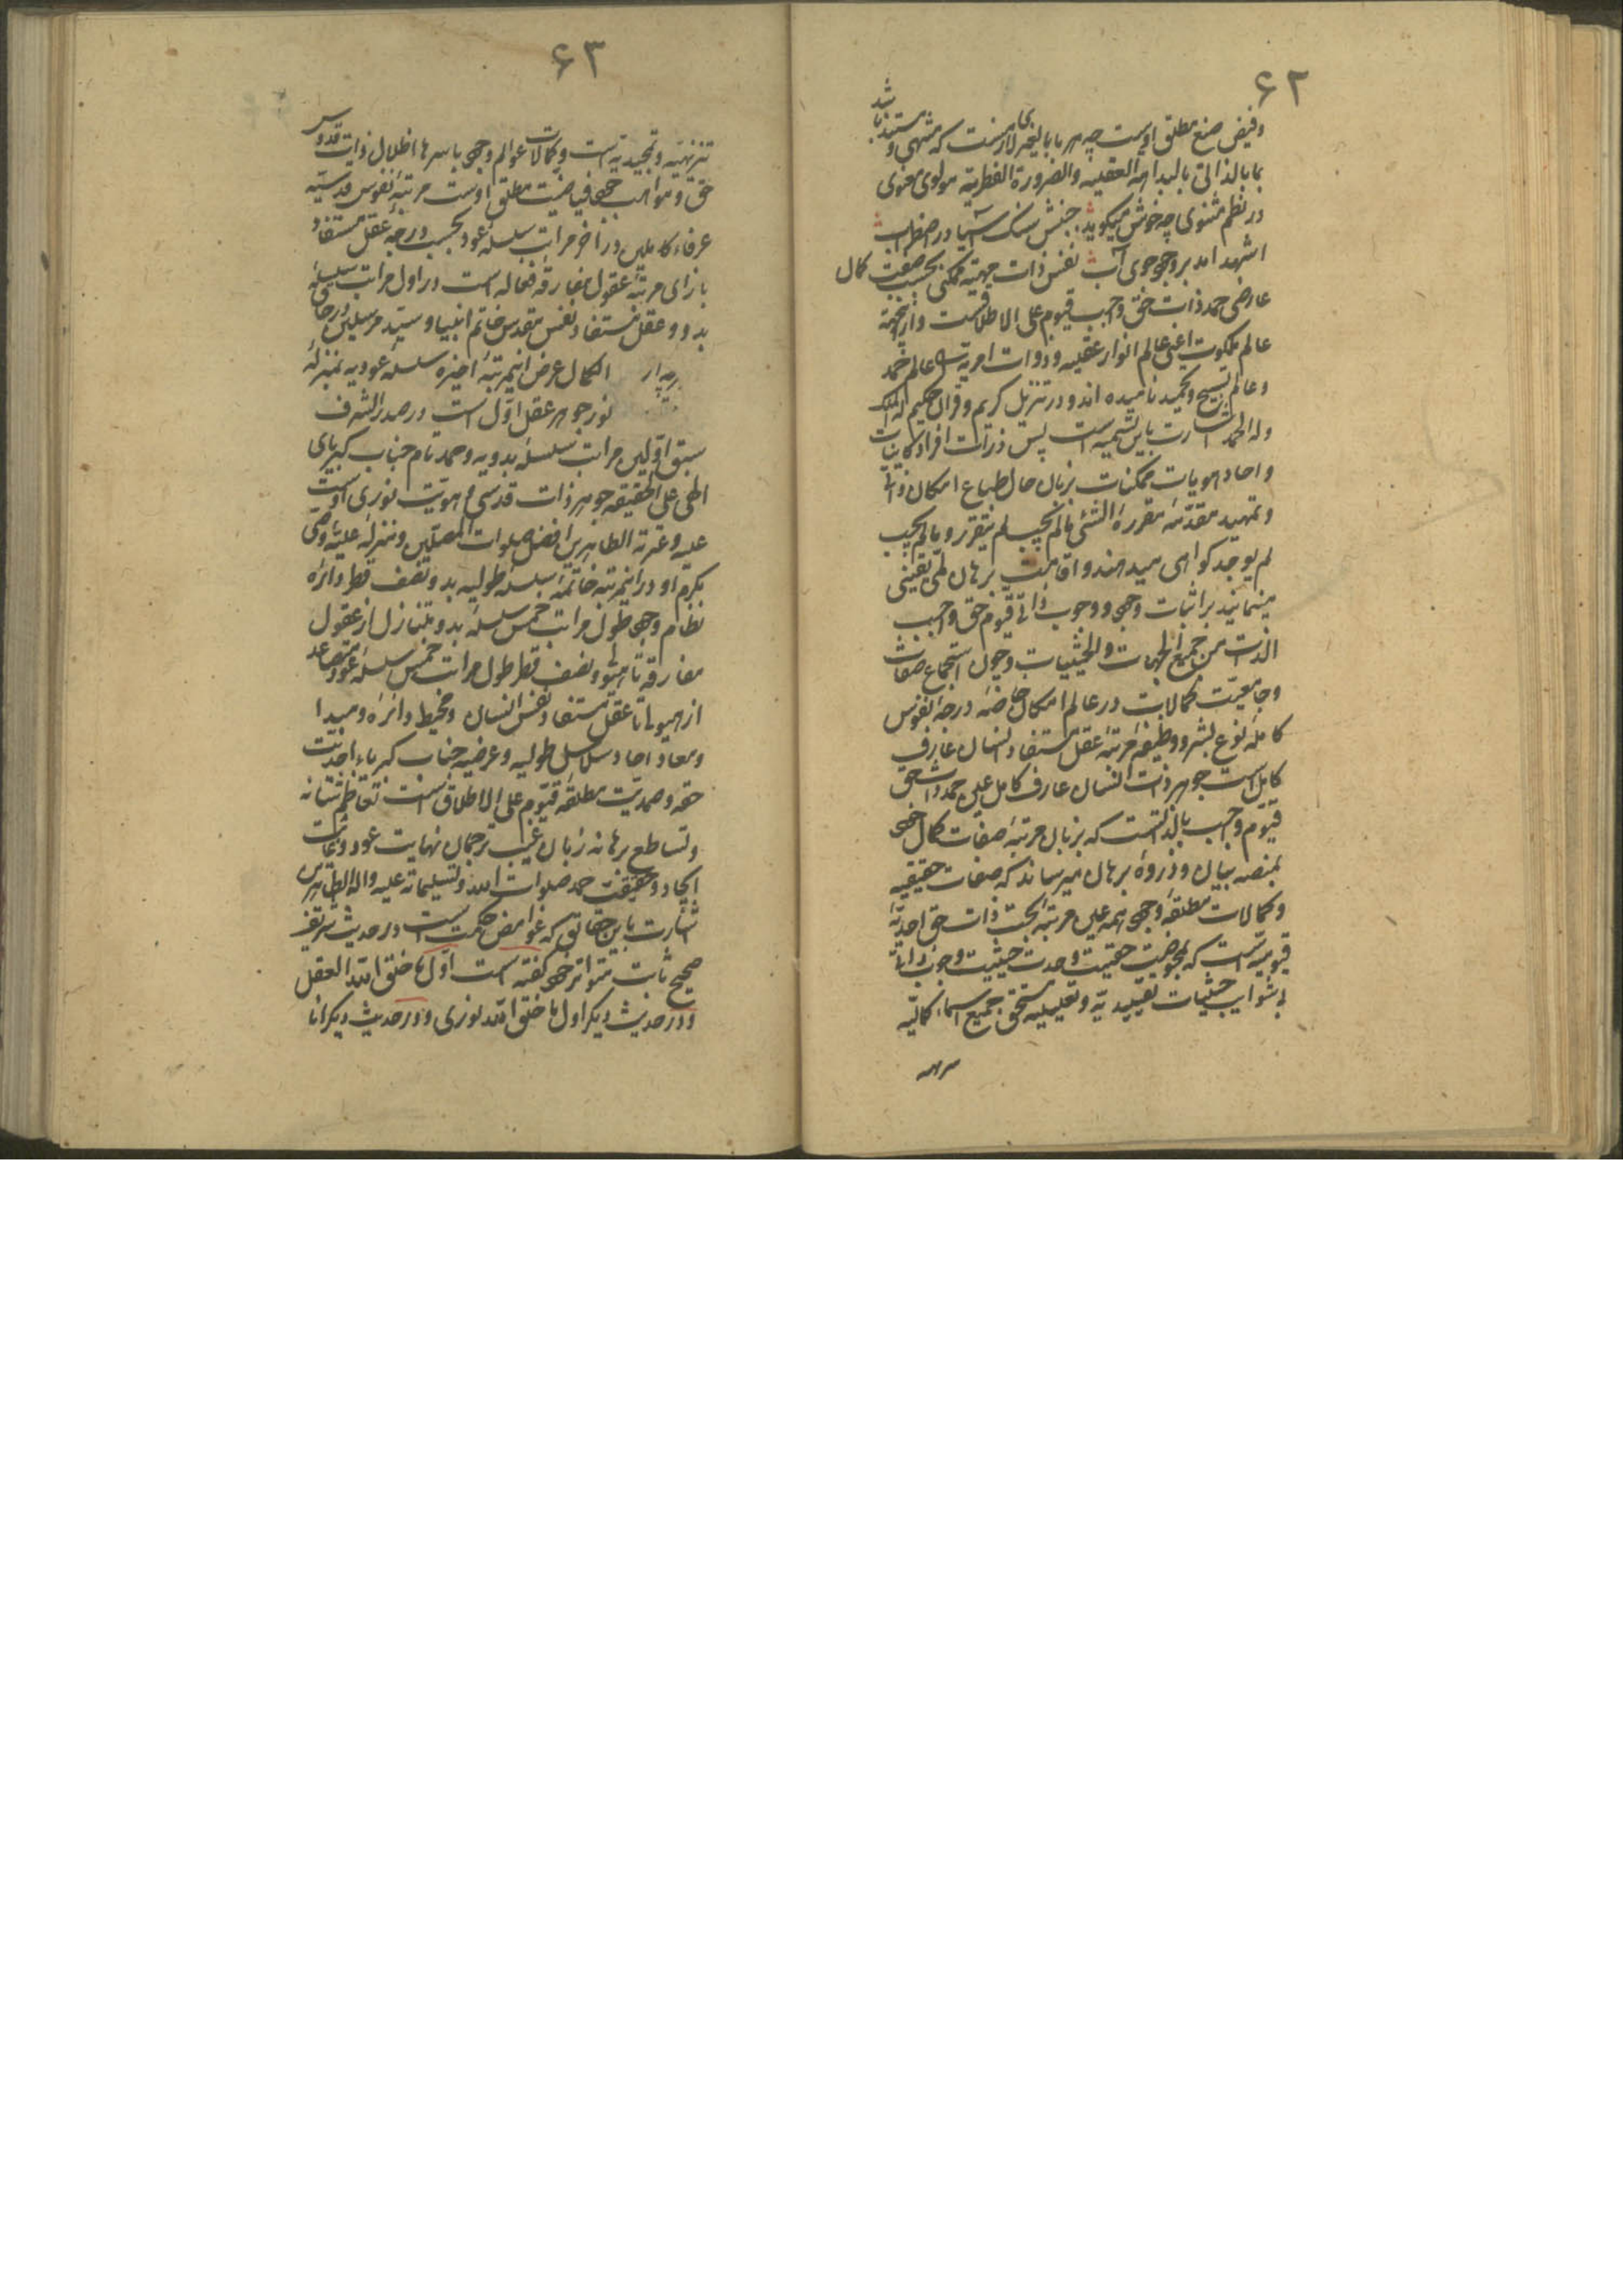 ۶۲
وفیض صنع مطلق اوست چه هر ما بالغیر لازمست که منتهی و مستند باشد
بما بالذاتی بالبداهه العقلیه والضرورة الفطریه مولوی معنوی
در نظم مثنوی چه خوش میکوید جنبش سنک آسیا در اضطراب
اشهد امد بر وجود جوی آب نفس ذات مهیة ممکن بحسب صفت کمال
عارضی حمد ذات حق واجب قیوم علی الاطلاقست و ازینجهة
عالم ملکوت اعنی عالم انوار عقلیه و ذوات امریه را عالم حمد
و عالم تسبیح و تحمید نامیده اند و در تنزیل کریم و قران حکیم له الملک
وله الحمد اشارت باین تسمیه است پس ذرات افراد کاینات
و احاد هویات ممکنات بزبان حال طباع امکان ذاتی
و تمهید مقدمه مقرره الشئی مالم یجب لم یتقرر و مالم یجب
لم یوجد کواهی میدهند و اقامت برهان لمی یقینی
مینمایند بر اثبات وجود و وجوب ذاتی قیوم حق واجب
الذات من جمیع الجهات والحیثیات و چون استجماع صفات
و جامعیت کمالات در عالم امکان خاصه درجه نفوس
کامله نوع بشر و وظیفه مرتبه عقل مستفاد انسان عارف
کامل است جوهر ذات انسان عارف کامل عین حمد ذات حق
قیوم واجب بالذاتست که بزبان مرتبه صفات کمال خود
بمنصه بیان و ذروه برهان میرساند که صفات حقیقیه
و کمالات مطلقه وجود همه عین مرتبه بحت ذات حق احدیه
قیومیه است که بمحوضت حقیقت وحدت حیثیت وجوب ذاتی
بی شوایب حیثیات تقییدیه و تعلیلیه مستحق جمیع اسماء کمالیه
۶۳
تنزیهیه و تمجیدیه است و کمالات عوالم وجود باسرها اظلال ذات قدوس
حق و مواهب جود فیاضیت مطلق اوست مرتبه نفوس قدسیه
عرفاء کاملین در اخر مراتب سلسله عود بحسب درجه عقل مستفاد
بازای مرتبه عقول مفارقه فعاله است در اول مراتب سلسله
بدو و عقل مستفاد نفس مقدس خاتم انبیا و سید مرسلین در جات
الکمال عرض انیمرتبه اخیره سلسله عودیه بمنزله
نور جوهر عقل اول است در صدر الشرف
سبق اولین مراتب سلسله بدویه و حمد تام جناب کبریای
الهی علی الحقیقه جوهر ذات قدسی و هویت نوری اوست
علیه و عترته الطاهرین افضل صلوات المصلین و منزله علیه وصی
مکرم او در انیمرتبه خاتمه سلسله طولیه بدو نصف قطر دائره
نظام وجود طول مراتب خمس سلسله بدو متنازل از عقول
مفارقه تا هیولی و نصف قطر طول مراتب خمس سلسله عود متصاعد
از هیولی تا عقل مستفاد نفس انسان و محیط دائره و مبدا
و معاد احاد سلاسل طولیه و عرضیه جناب کبریاء احدیت
حقه و صمدیت مطلقه قیوم علی الاطلاق است تعاظم شانه
و تساطع برهانه زبان غیب ترجمان نهایت عود و غایت
ایجاد و حقیقت حمد صلوات الله و تسلیماته علیه واله الطاهرین
اشارت باین حقایق که غوامض حکمت است در حدیث شریف
صحیح ثابت متواتر خود کفته است اول ما خلق الله العقل
و در حدیث دیکر اول ما خلق الله نوری و در حدیث دیکر انا